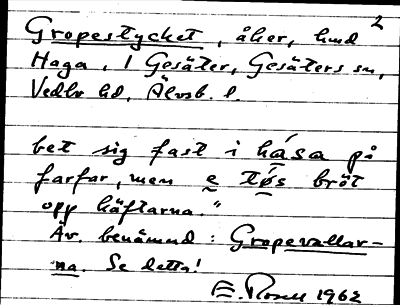 2
Gropestycket, åker, hmd
Haga, 1 Gesäter, Gesäters sn,
Vedbo hd, Älvsb. l.
bet sig fast i hása på
farfar, men e tǿs bröt
opp käftarna."
Äv. benämnd: Gropevallar-
na. Se detta!
E. Rosell 1962